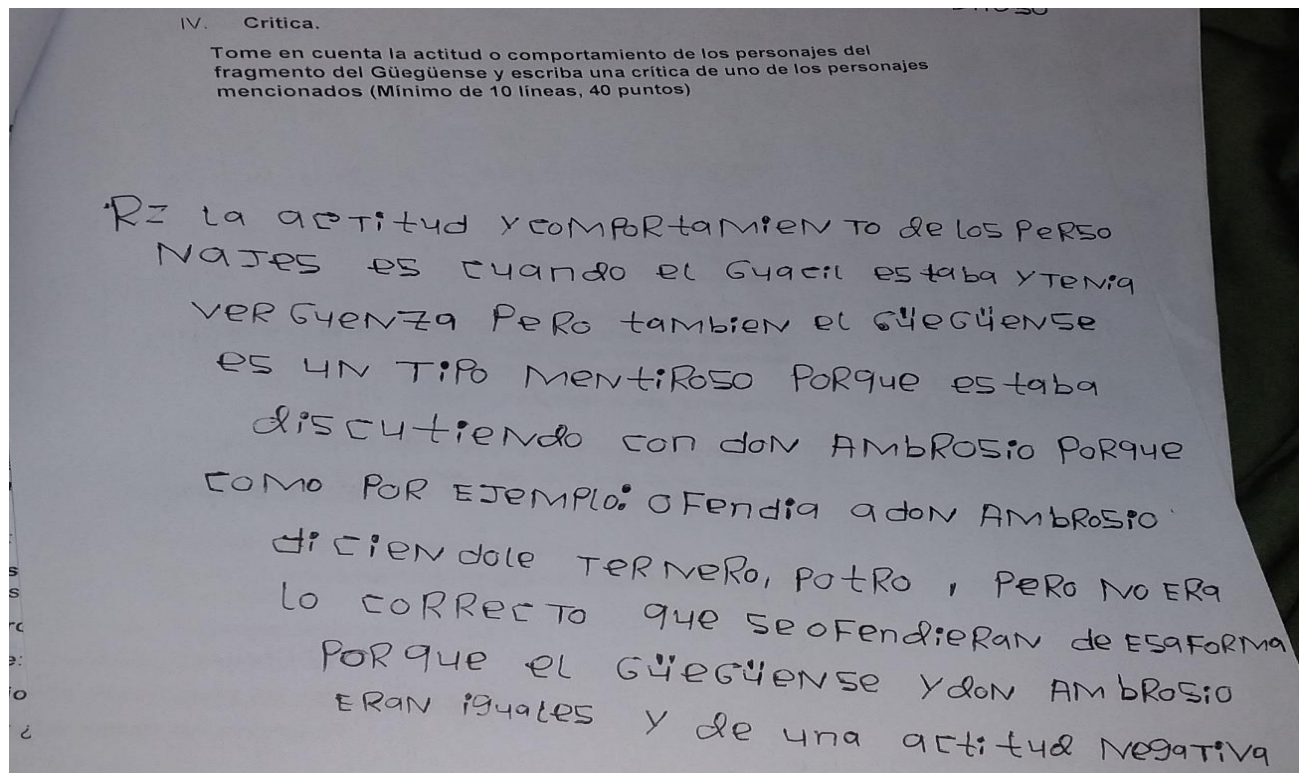 IV. Critica.
Tome en cuenta la actitud o comportamiento de los personajes del
fragmento del Güegüense y escriba una crítica de uno de los personajes
mencionados (Mínimo de 10 líneas, 40 puntos)
R= La actitud y comportamiento de los perso
najes es cuando el Guacil estaba y tenia
verguenza pero tambien el Güegüense
es un tipo mentiroso porque estaba
discutiendo con don Ambrosio porque
como por ejemplo: ofendia a don Ambrosio
diciendole ternero, potro, pero no era
lo correcto que se ofendieran de esa forma
porque el Güegüense y don Ambrosio
eran iguales y de una actitud negativa